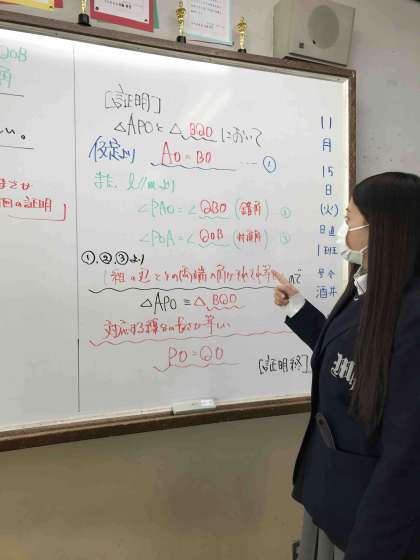 QOB
角
い。
の証明
[証明]
△APOと△BQOにおいて
仮定より AO=BO …①
また、l//mより
∠PAO=∠QBO(錯角)②
∠POA=∠QOB(対頂角)③
①、②、③より
1組の辺とその両端の角がそれぞれ等しいので
△APO≡△BQO
対応する辺の長さは等しい
PO=QO
[証明終]
11
月
15
日
(火)
日直
1班
号令
酒井